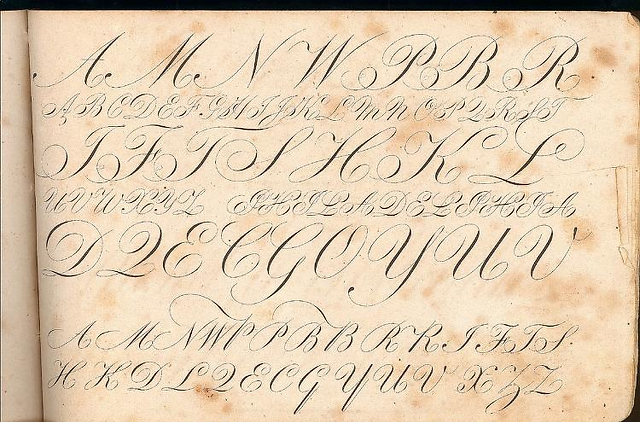 A M N W P B R
A B C D E F G H I J K L M N O P Q R S T
I F T S H K L
U V W X Y Z PHILADELPHIA
D Q E C G O Y U V
A M N W P P B B R R I F T S.
H K D L Q E C G Y U V X Y Z